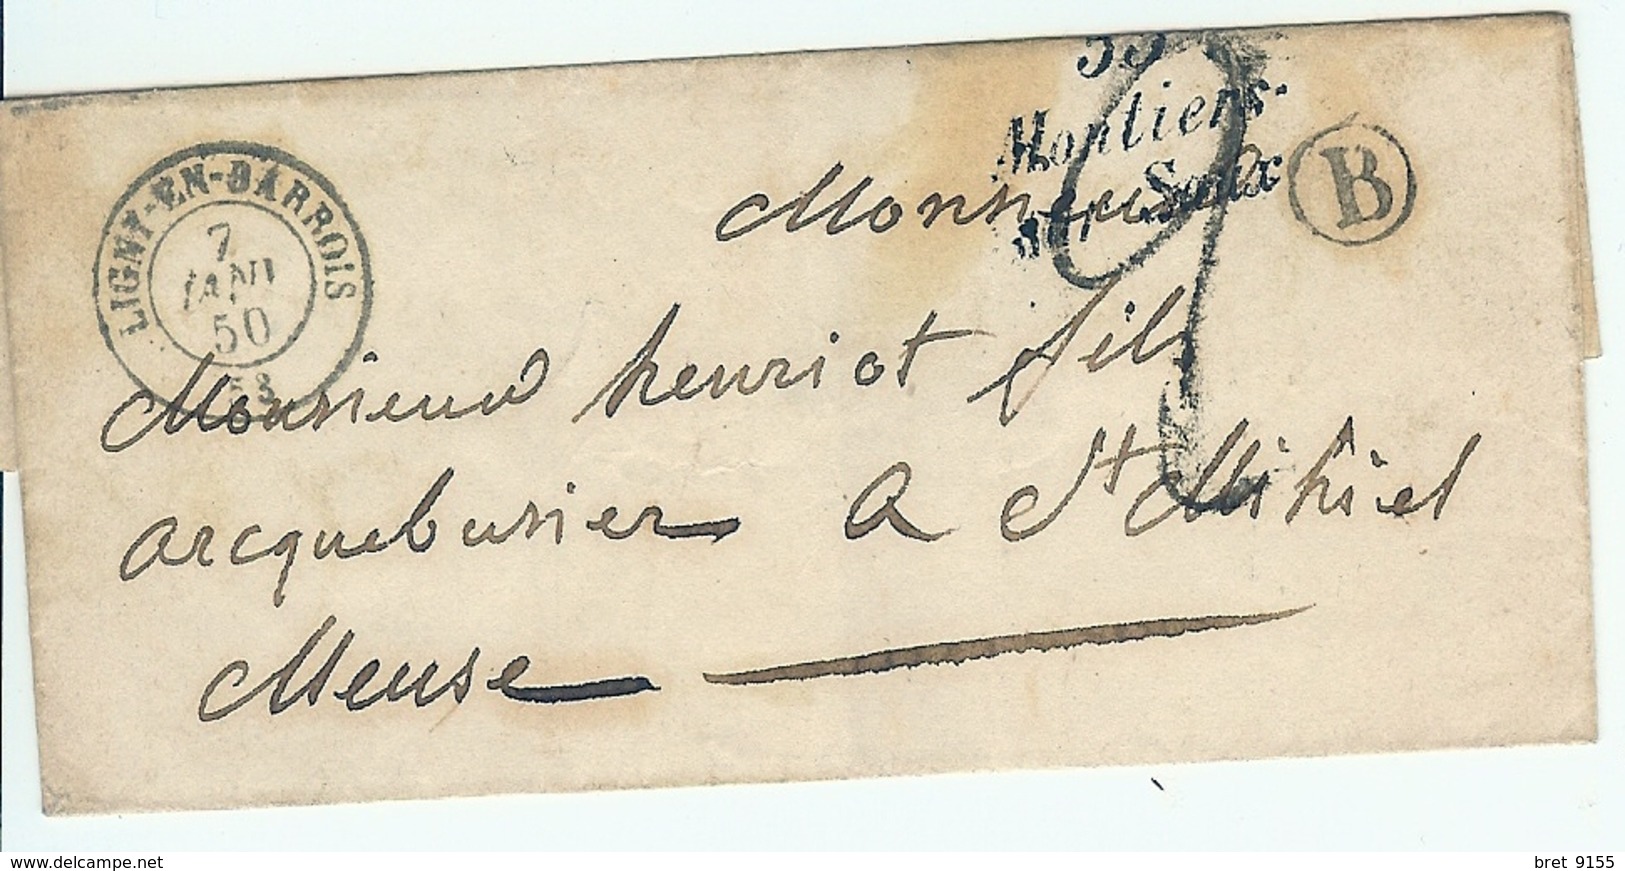 55
Montiers-
sur-Saulx
B
LIGNY-EN-BARROIS
7
JANV
50
53
Monsieur
Monsieur henriot fils
arcquebusier A St Mihiel
Meuse
www.delcampe.net
bret 9155